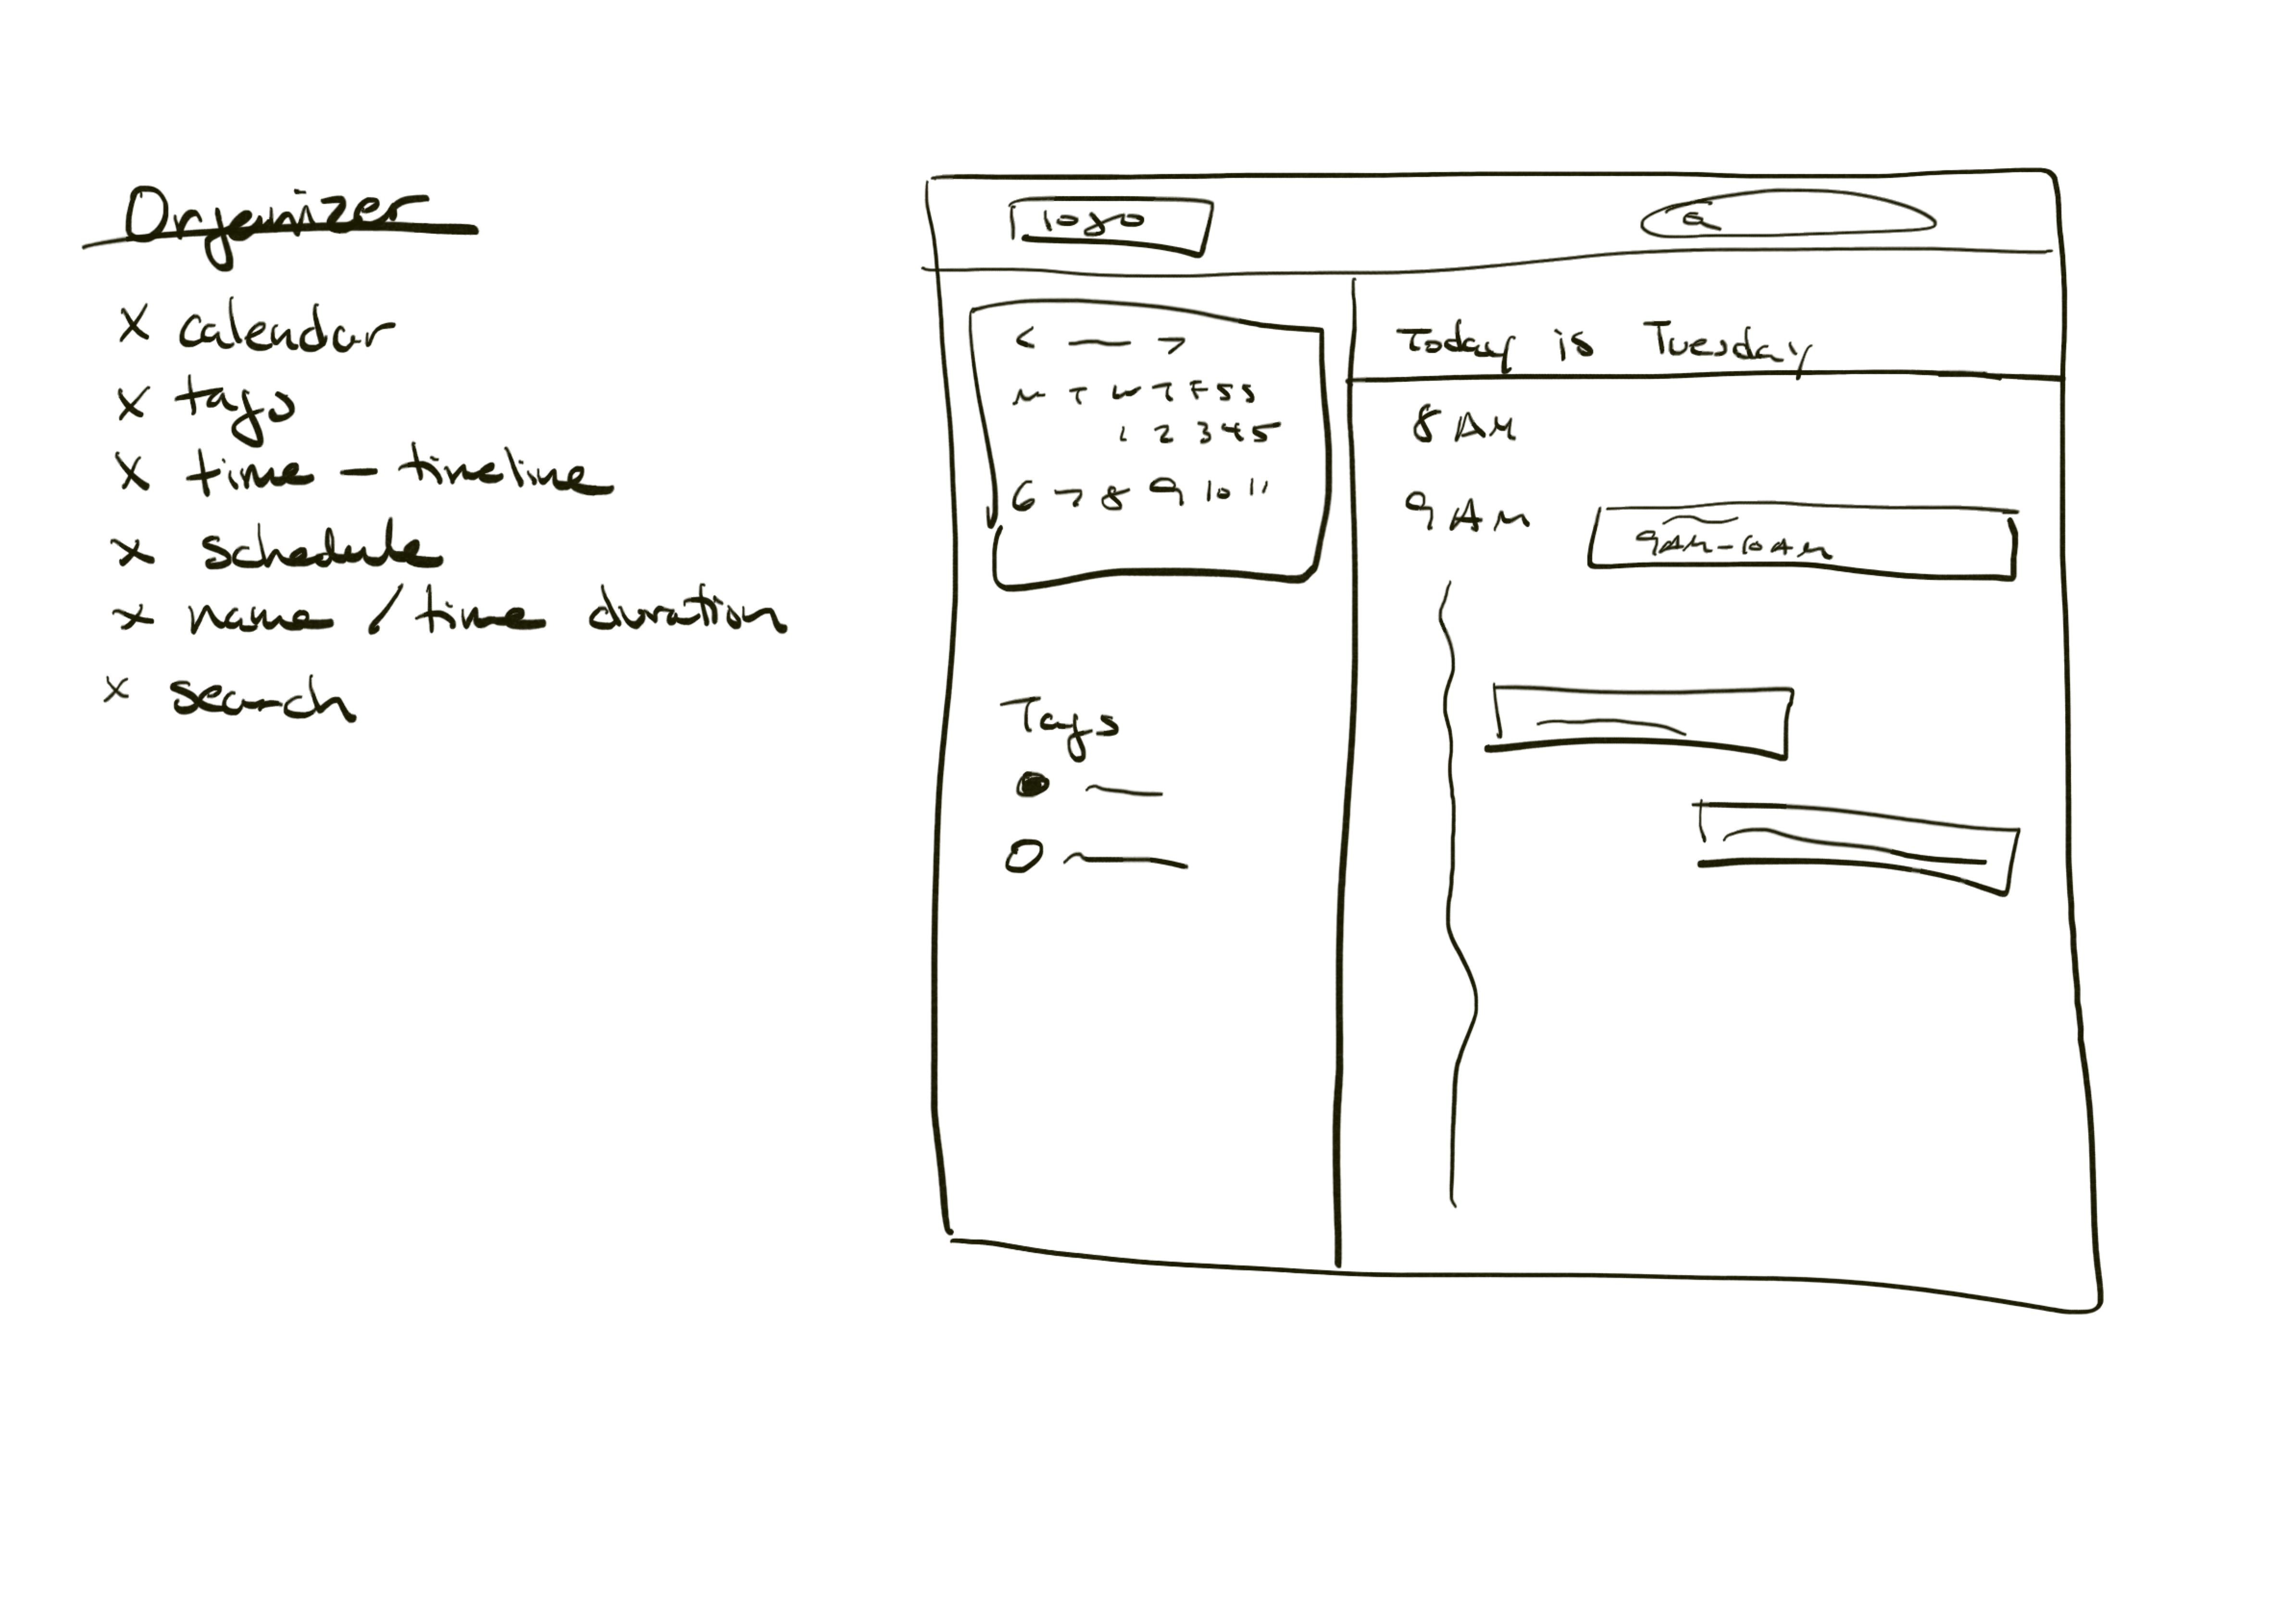 Organizer
x calendar
x tags
x time - timeline
x schedule
x name / time duration
x search
logo
< >
M T W T F S S
1 2 3 4 5
6 7 8 9 10 11
Tags
Today is Tuesday
8 AM
9 AM
9AM-10AM